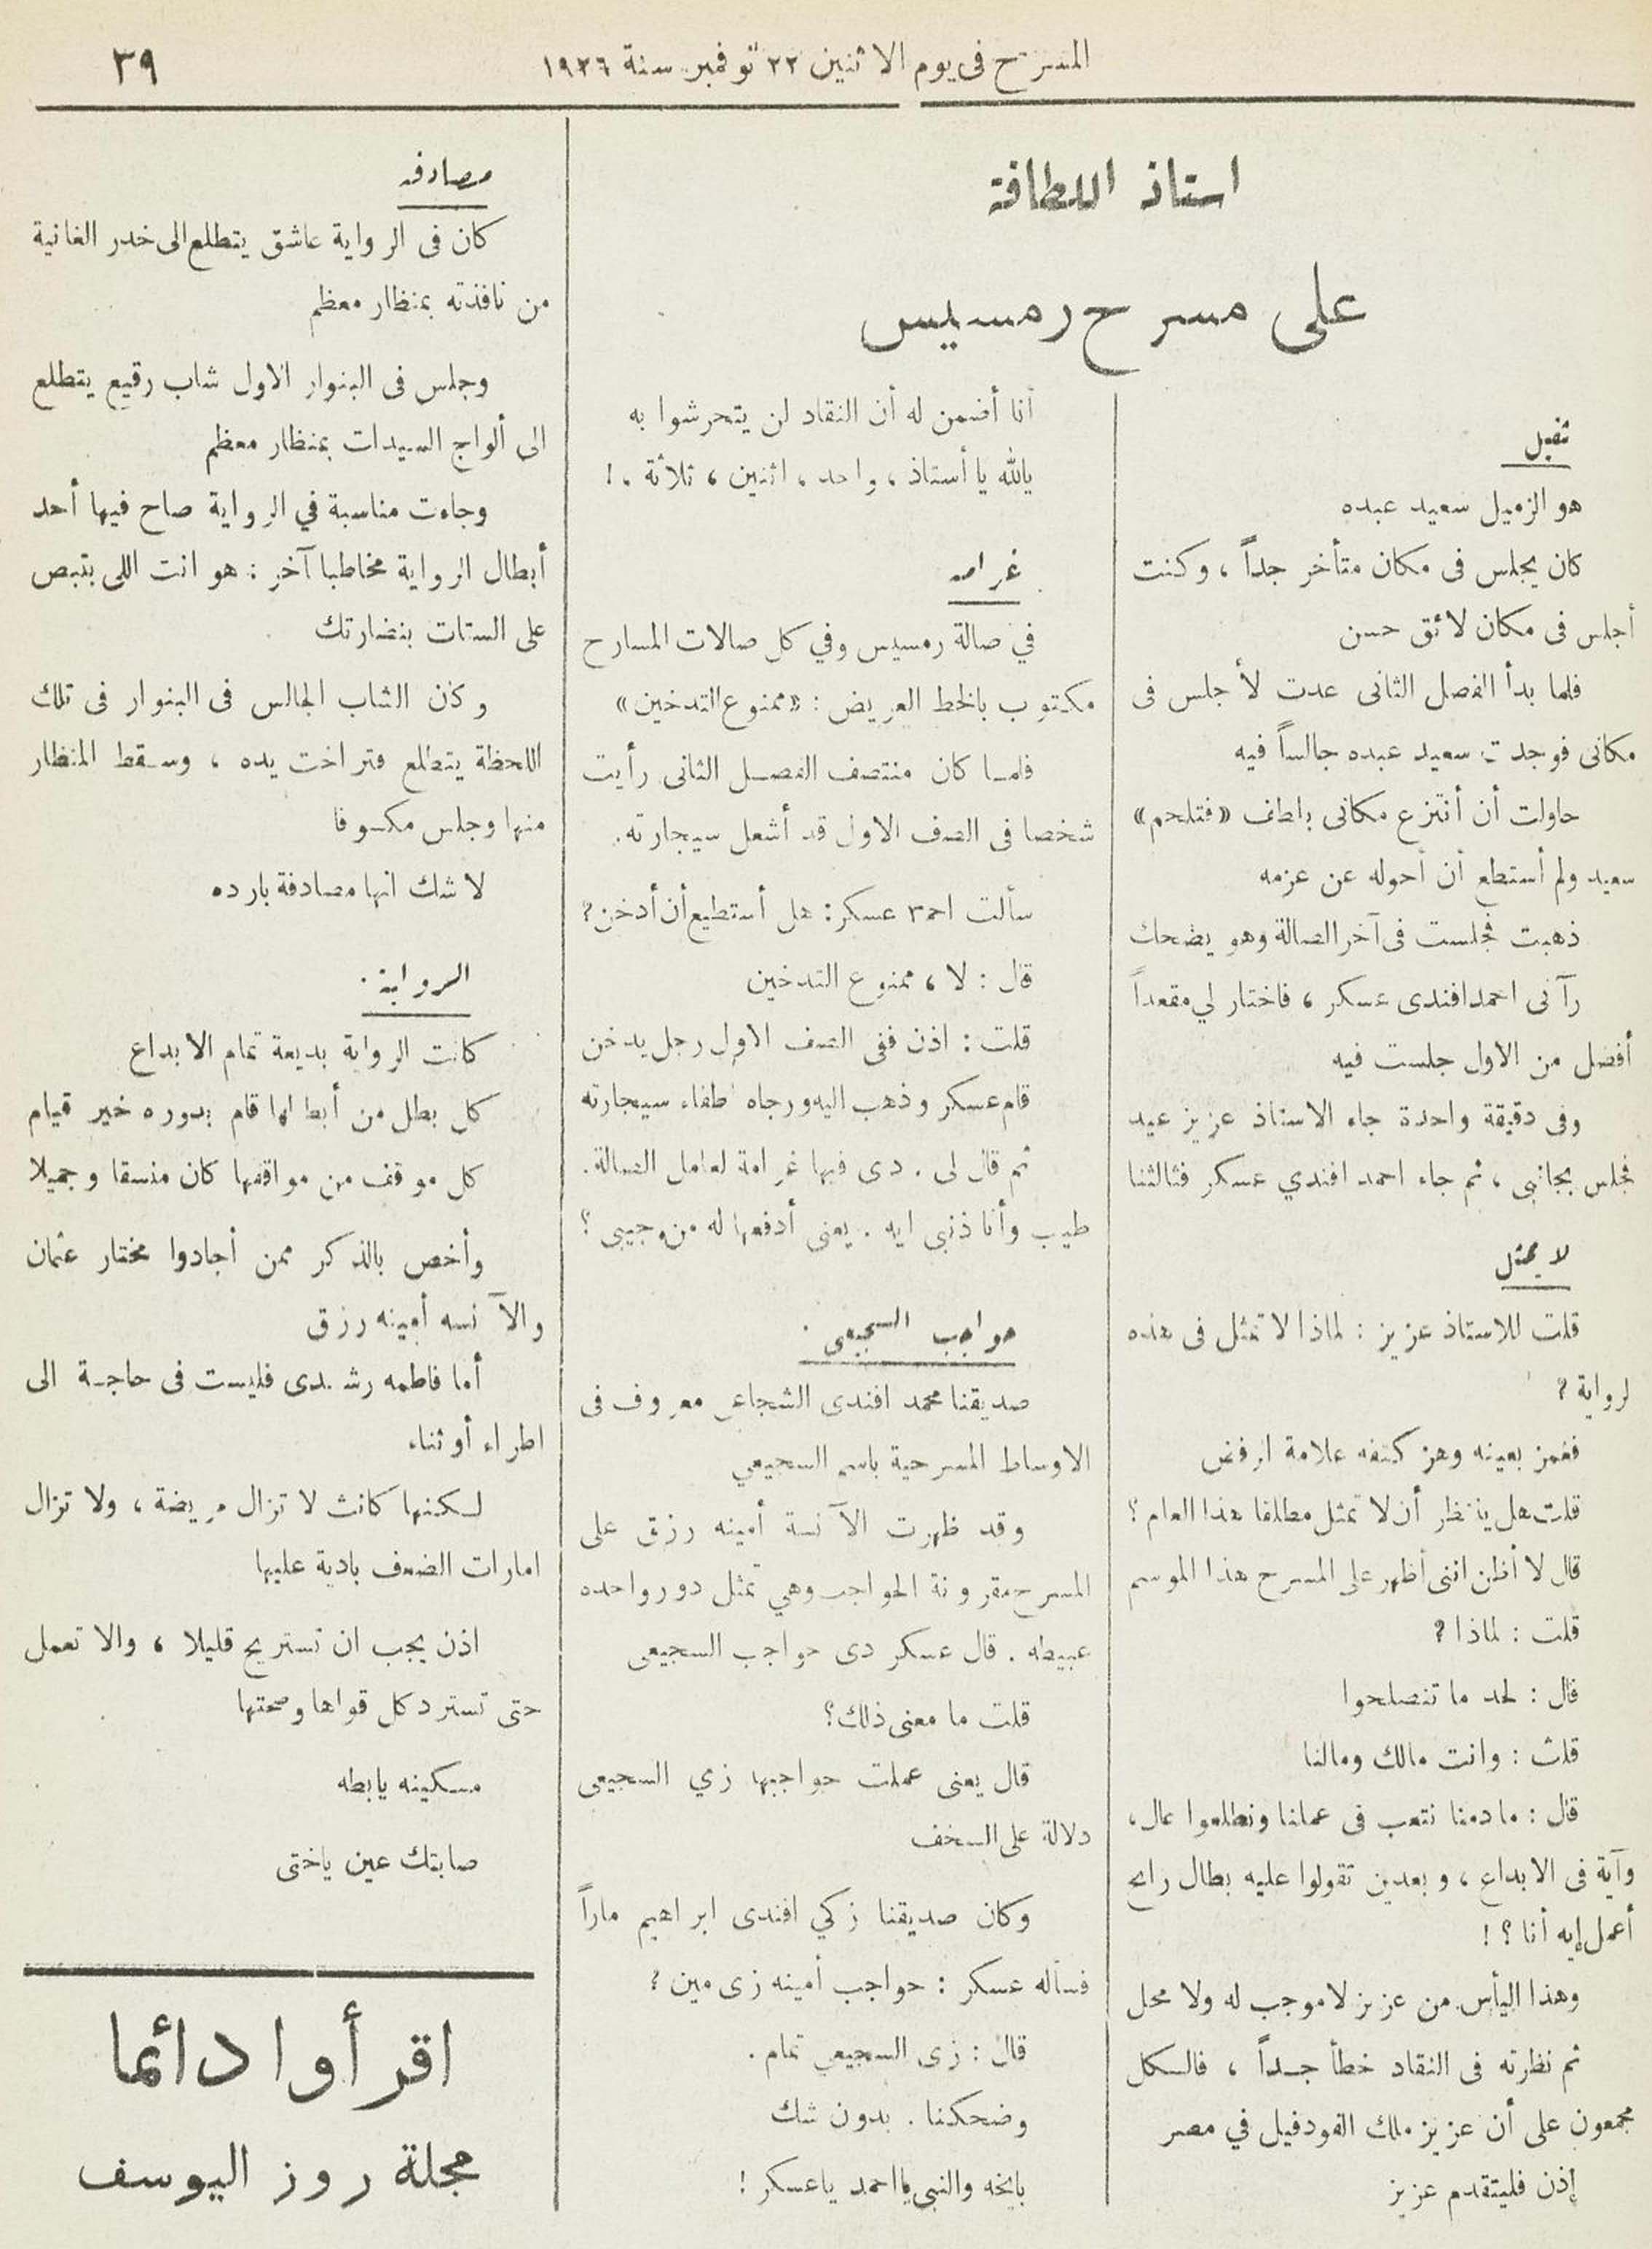 المسرح في يوم الاثنين ٢٢ نوفمبر سنة ١٩٢٦
٣٩
استاذ اللطافة
على مسرح رمسيس
ثقيل
هو الزميل سعيد عبده
كان يجلس فى مكان متأخر جداً ، وكنت
أجلس فى مكان لائق حسن
فلما بدأ الفصل الثانى عدت لأجلس فى
مكانى فوجدت سعيد عبده جالساً فيه
حاولت أن أنتزع مكانى بلطف «فتلحم»
سعيد ولم أستطع أن أحوله عن عزمه
ذهبت فجلست فى آخر الصالة وهو يضحك
رآنى احمد افندى عسكر ، فاختار لي مقعداً
أفضل من الاول جلست فيه
وفى دقيقة واحدة جاء الاستاذ عزيز عيد
فجلس بجانبى ، ثم جاء احمد افندي عسكر فثالثنا
لا يمثل
قلت للاستاذ عزيز : لماذا لا تمثل فى هذه
لرواية ؟
فغمز بعينه وهز كتفه علامة الرفض
قلت هل ينتظر أن لا تمثل مطلقا هذا العام ؟
قال لا أظن اننى أظهر على المسرح هذا الموسم
قلت : لماذا ؟
قال : لحد ما تنصلحوا
قلت : وانت مالك ومالنا
قال : مادمنا نتعب فى عملنا ونطلعوا عال ،
وآية فى الابداع ، وبعدين تقولوا عليه بطال رايح
أعمل إيه أنا ؟ !
وهذا اليأس من عزيز لا موجب له ولا محل
ثم نظرته فى النقاد خطأ جداً ، فالكل
مجمعون على أن عزيز ملك الفودفيل في مصر
إذن فليتقدم عزيز
أنا أضمن له أن النقاد لن يتحرشوا به
يالله يا أستاذ ، واحد ، اثنين ، ثلاثة ، !
غرامه
في صالة رمسيس وفي كل صالات المسارح
مكتوب بالخط العريض : «ممنوع التدخين»
فلما كان منتصف الفصل الثانى رأيت
شخصا فى الصف الاول قد أشعل سيجارته.
سألت احمد عسكر : هل أستطيع أن أدخن ؟
قال : لا ، ممنوع التدخين
قلت : اذن ففى الصف الاول رجل يدخن
قام عسكر وذهب اليه ورجاه اطفاء سيجارته
ثم قال لى . دى فيها غرامة لعامل الصالة .
طيب وأنا ذنبى ايه . يعنى أدفعها له من جيبى ؟
حواجب السجيعى
صديقنا محمد افندى الشجاعى معروف فى
الاوساط المسرحية باسم السجيعي
وقد ظهرت الآنسة أمينه رزق على
المسرح مقرونة الحواجب وهي تمثل دور واحده
عبيطه . قال عسكر دى حواجب السجيعى
قلت ما معنى ذلك ؟
قال يعنى عملت حواجبها زي السجيعى
دلالة على السخف
وكان صديقنا زكي افندى ابراهيم ماراً
فسأله عسكر : حواجب أمينه زى مين ؟
قال : زى السجيعى تمام .
وضحكنا . بدون شك
بايخه والنبى يااحمد ياعسكر !
مصادفه
كان فى الرواية عاشق يتطلع الى خدر الغانية
من نافذته بمنظار معظم
وجلس فى البنوار الاول شاب رقيع يتطلع
الى ألواج السيدات بمنظار معظم
وجاءت مناسبة في الرواية صاح فيها أحد
أبطال الرواية مخاطبا آخر : هو انت اللى بتبص
على الستات بنضارتك
وكان الشاب الجالس فى البنوار فى تلك
اللحظة يتطلع فتراخت يده ، وسقط المنظار
منها وجلس مكسوفا
لا شك انها مصادفة بارده
الرواية
كانت الرواية بديعة تمام الابداع
كل بطل من أبطالها قام بدوره خير قيام
كل موقف من مواقفها كان منسقا وجميلا
وأخص بالذكر ممن أجادوا مختار عثمان
والآنسه أمينه رزق
أما فاطمه رشدى فليست فى حاجة الى
اطراء أو ثناء
لكنها كانت لا تزال مريضة ، ولا تزال
امارات الضعف بادية عليها
اذن يجب ان تستريح قليلا ، والا تعمل
حتى تسترد كل قواها وصحتها
مسكينه يابطه
صابتك عين ياختى
اقرأوا دائما
مجلة روز اليوسف